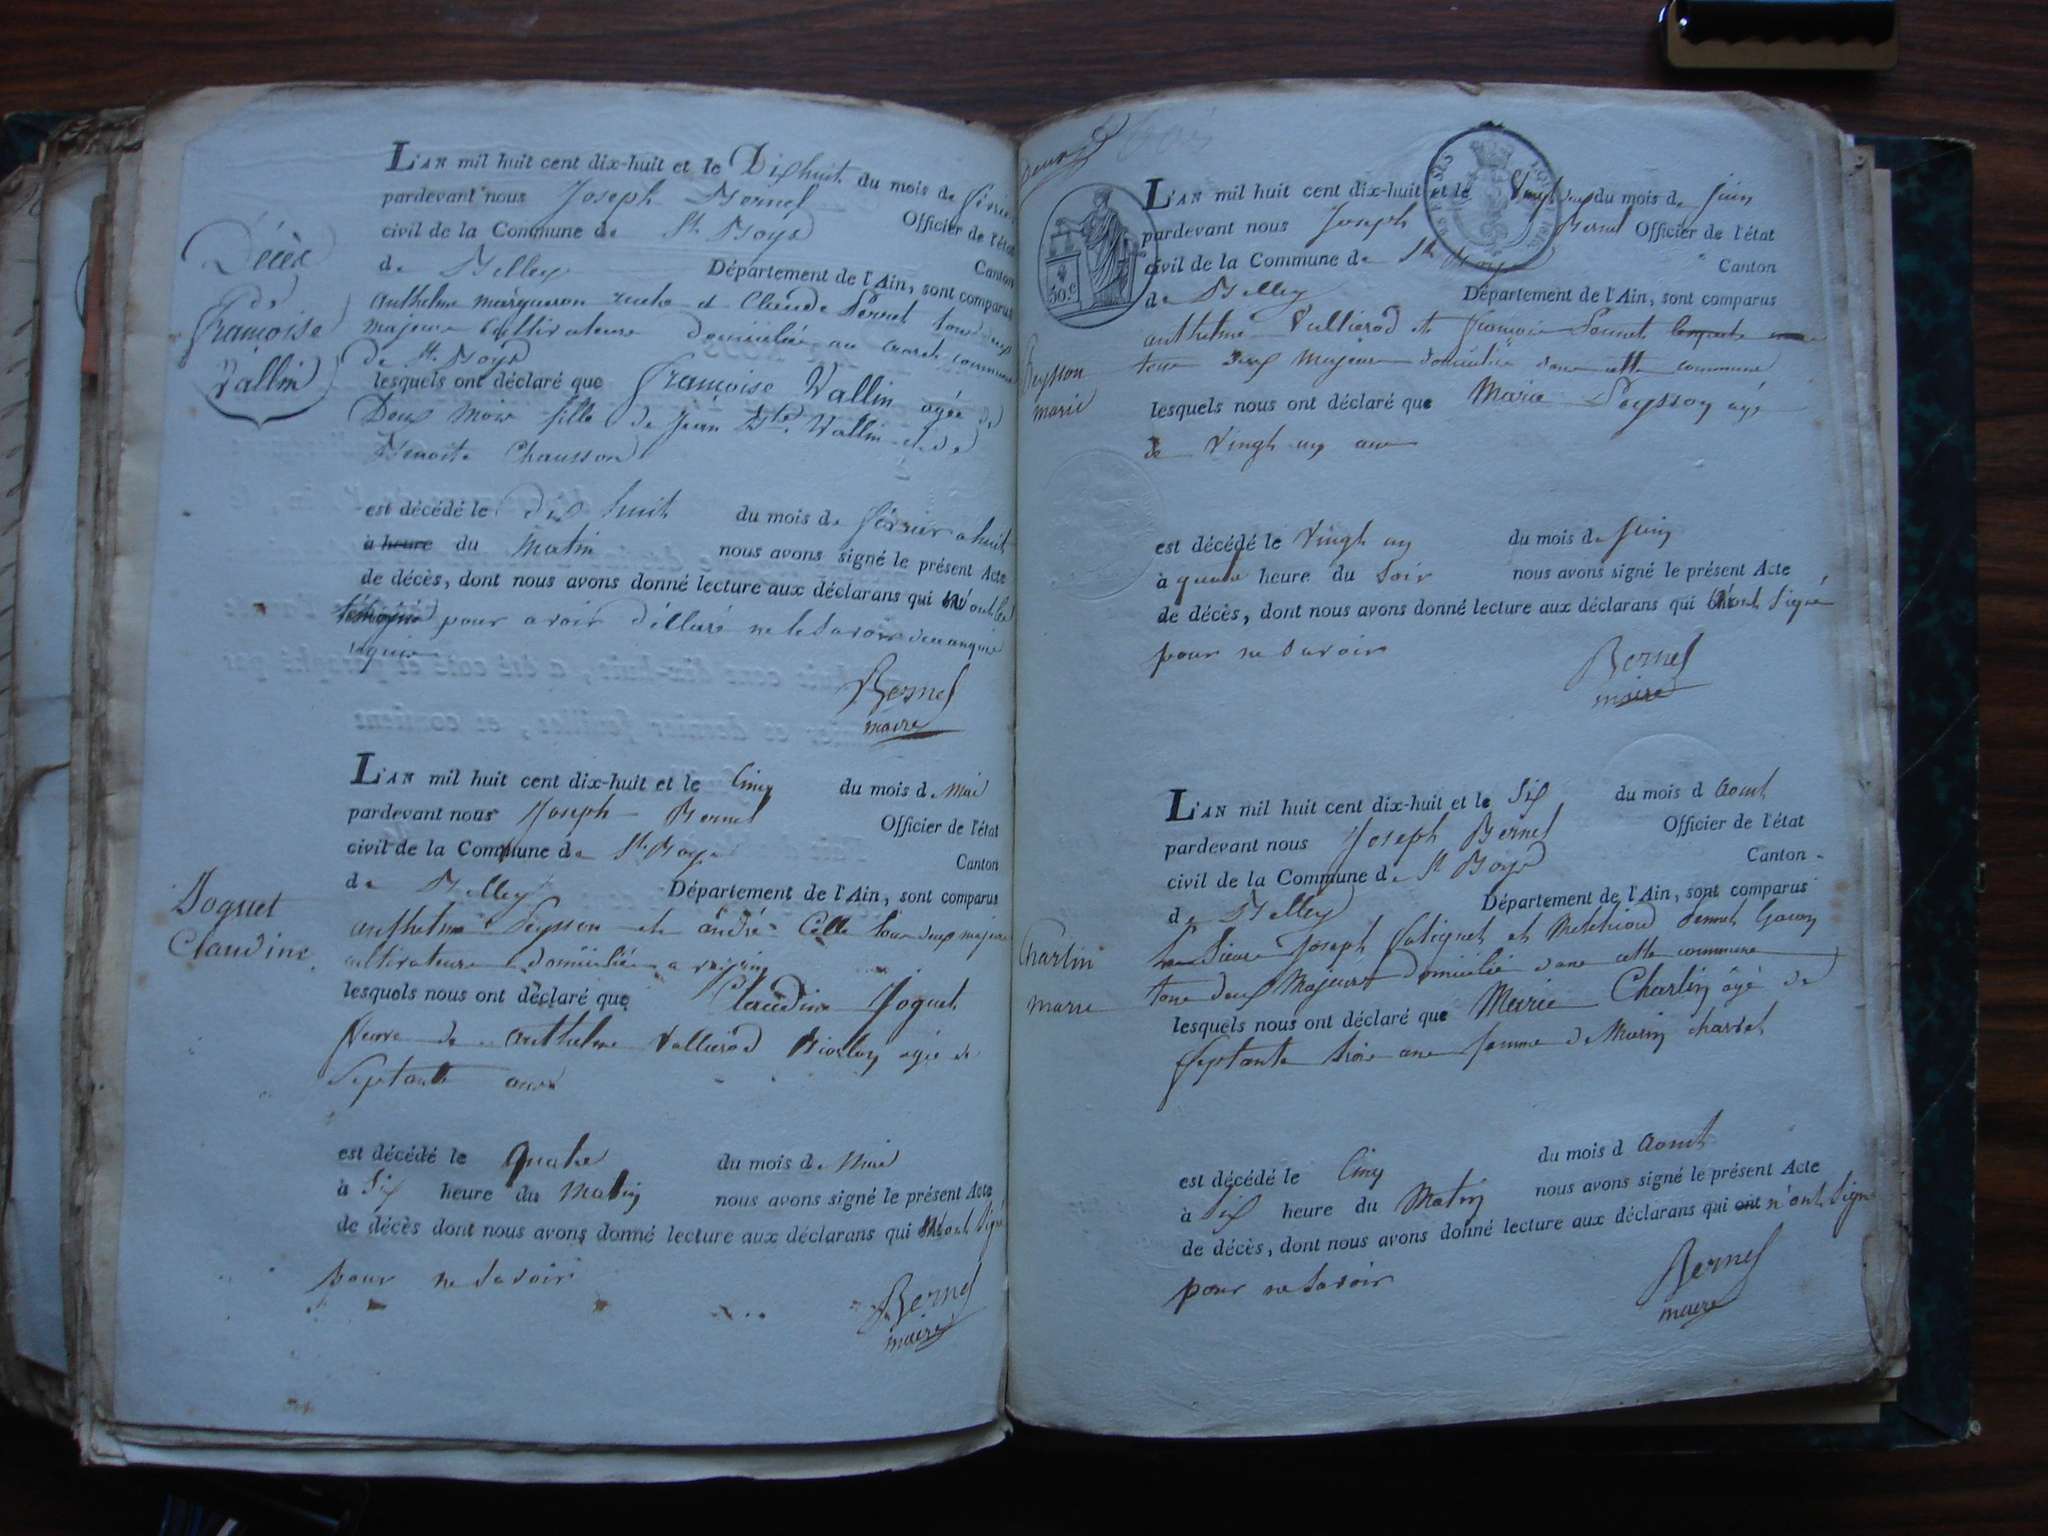 Décès
de
Françoise
Vallin
L'AN mil huit cent dix-huit et le Dixhuit du mois de février
pardevant nous Joseph Bernel Officier de l'état
civil de la Commune de St. Boys Canton
de Belley Département de l'Ain, sont comparus
anthelme margueron et Claude Pernet tous deux
majeurs cultivateurs domiciliés au commune
de St. Boys
lesquels ont déclaré que Françoise Vallin agée de
Deux mois fille de Jean Bte. Vallin et de
Benoite Chausson
est décédé le dix huit du mois de février a huit
à heure du Matin nous avons signé le présent Acte
de décès, dont nous avons donné lecture aux déclarans qui n'ont
pour avoir déclaré ne le savoir
signer
Bernel
maire
Joguet
Claudine
L'AN mil huit cent dix-huit et le Cinq du mois de Mai
pardevant nous Joseph Bernel Officier de l'état
civil de la Commune de St. Boys Canton
de Belley Département de l'Ain, sont comparus
anthelme Peysson et andré Celle tous deux majeurs
cultivateurs domiciliés a
lesquels nous ont déclaré que Claudine Joguet
Veuve de anthelme Vallierod agée de
Septante ans
est décédé le quatre du mois de Mai
à Six heure du Matin nous avons signé le présent Acte
de décès dont nous avons donné lecture aux déclarans qui n'ont Signé
pour ne savoir
Bernel
maire
50.c
Peysson
marie
L'AN mil huit cent dix-huit et le Vingt deux du mois de Juin
pardevant nous Joseph Bernel Officier de l'état
civil de la Commune de St Boys Canton
de Belley Département de l'Ain, sont comparus
anthelme Vullierod et françois
tous deux majeurs domiciliés dans cette commune
lesquels nous ont déclaré que Marie Peysson agé
de Vingt un ans
est décédé le Vingt un du mois de Juin
à quatre heure du Soir nous avons signé le présent Acte
de décès, dont nous avons donné lecture aux déclarans qui n'ont Signé
pour ne savoir
Bernel
maire
Charlin
marie
L'AN mil huit cent dix-huit et le Six du mois d aout
pardevant nous Joseph Bernel Officier de l'état
civil de la Commune de St Boys Canton
de Belley Département de l'Ain, sont comparus
Joseph et
tous deux Majeurs domiciliés dans cette commune
lesquels nous ont déclaré que Marie Charlin agé de
Septante trois ans femme de Marin charvet
est décédé le Cinq du mois d aout
à Six heure du Matin nous avons signé le présent Acte
de décès, dont nous avons donné lecture aux déclarans qui ont n'ont Signé
pour ne savoir
Bernel
maire